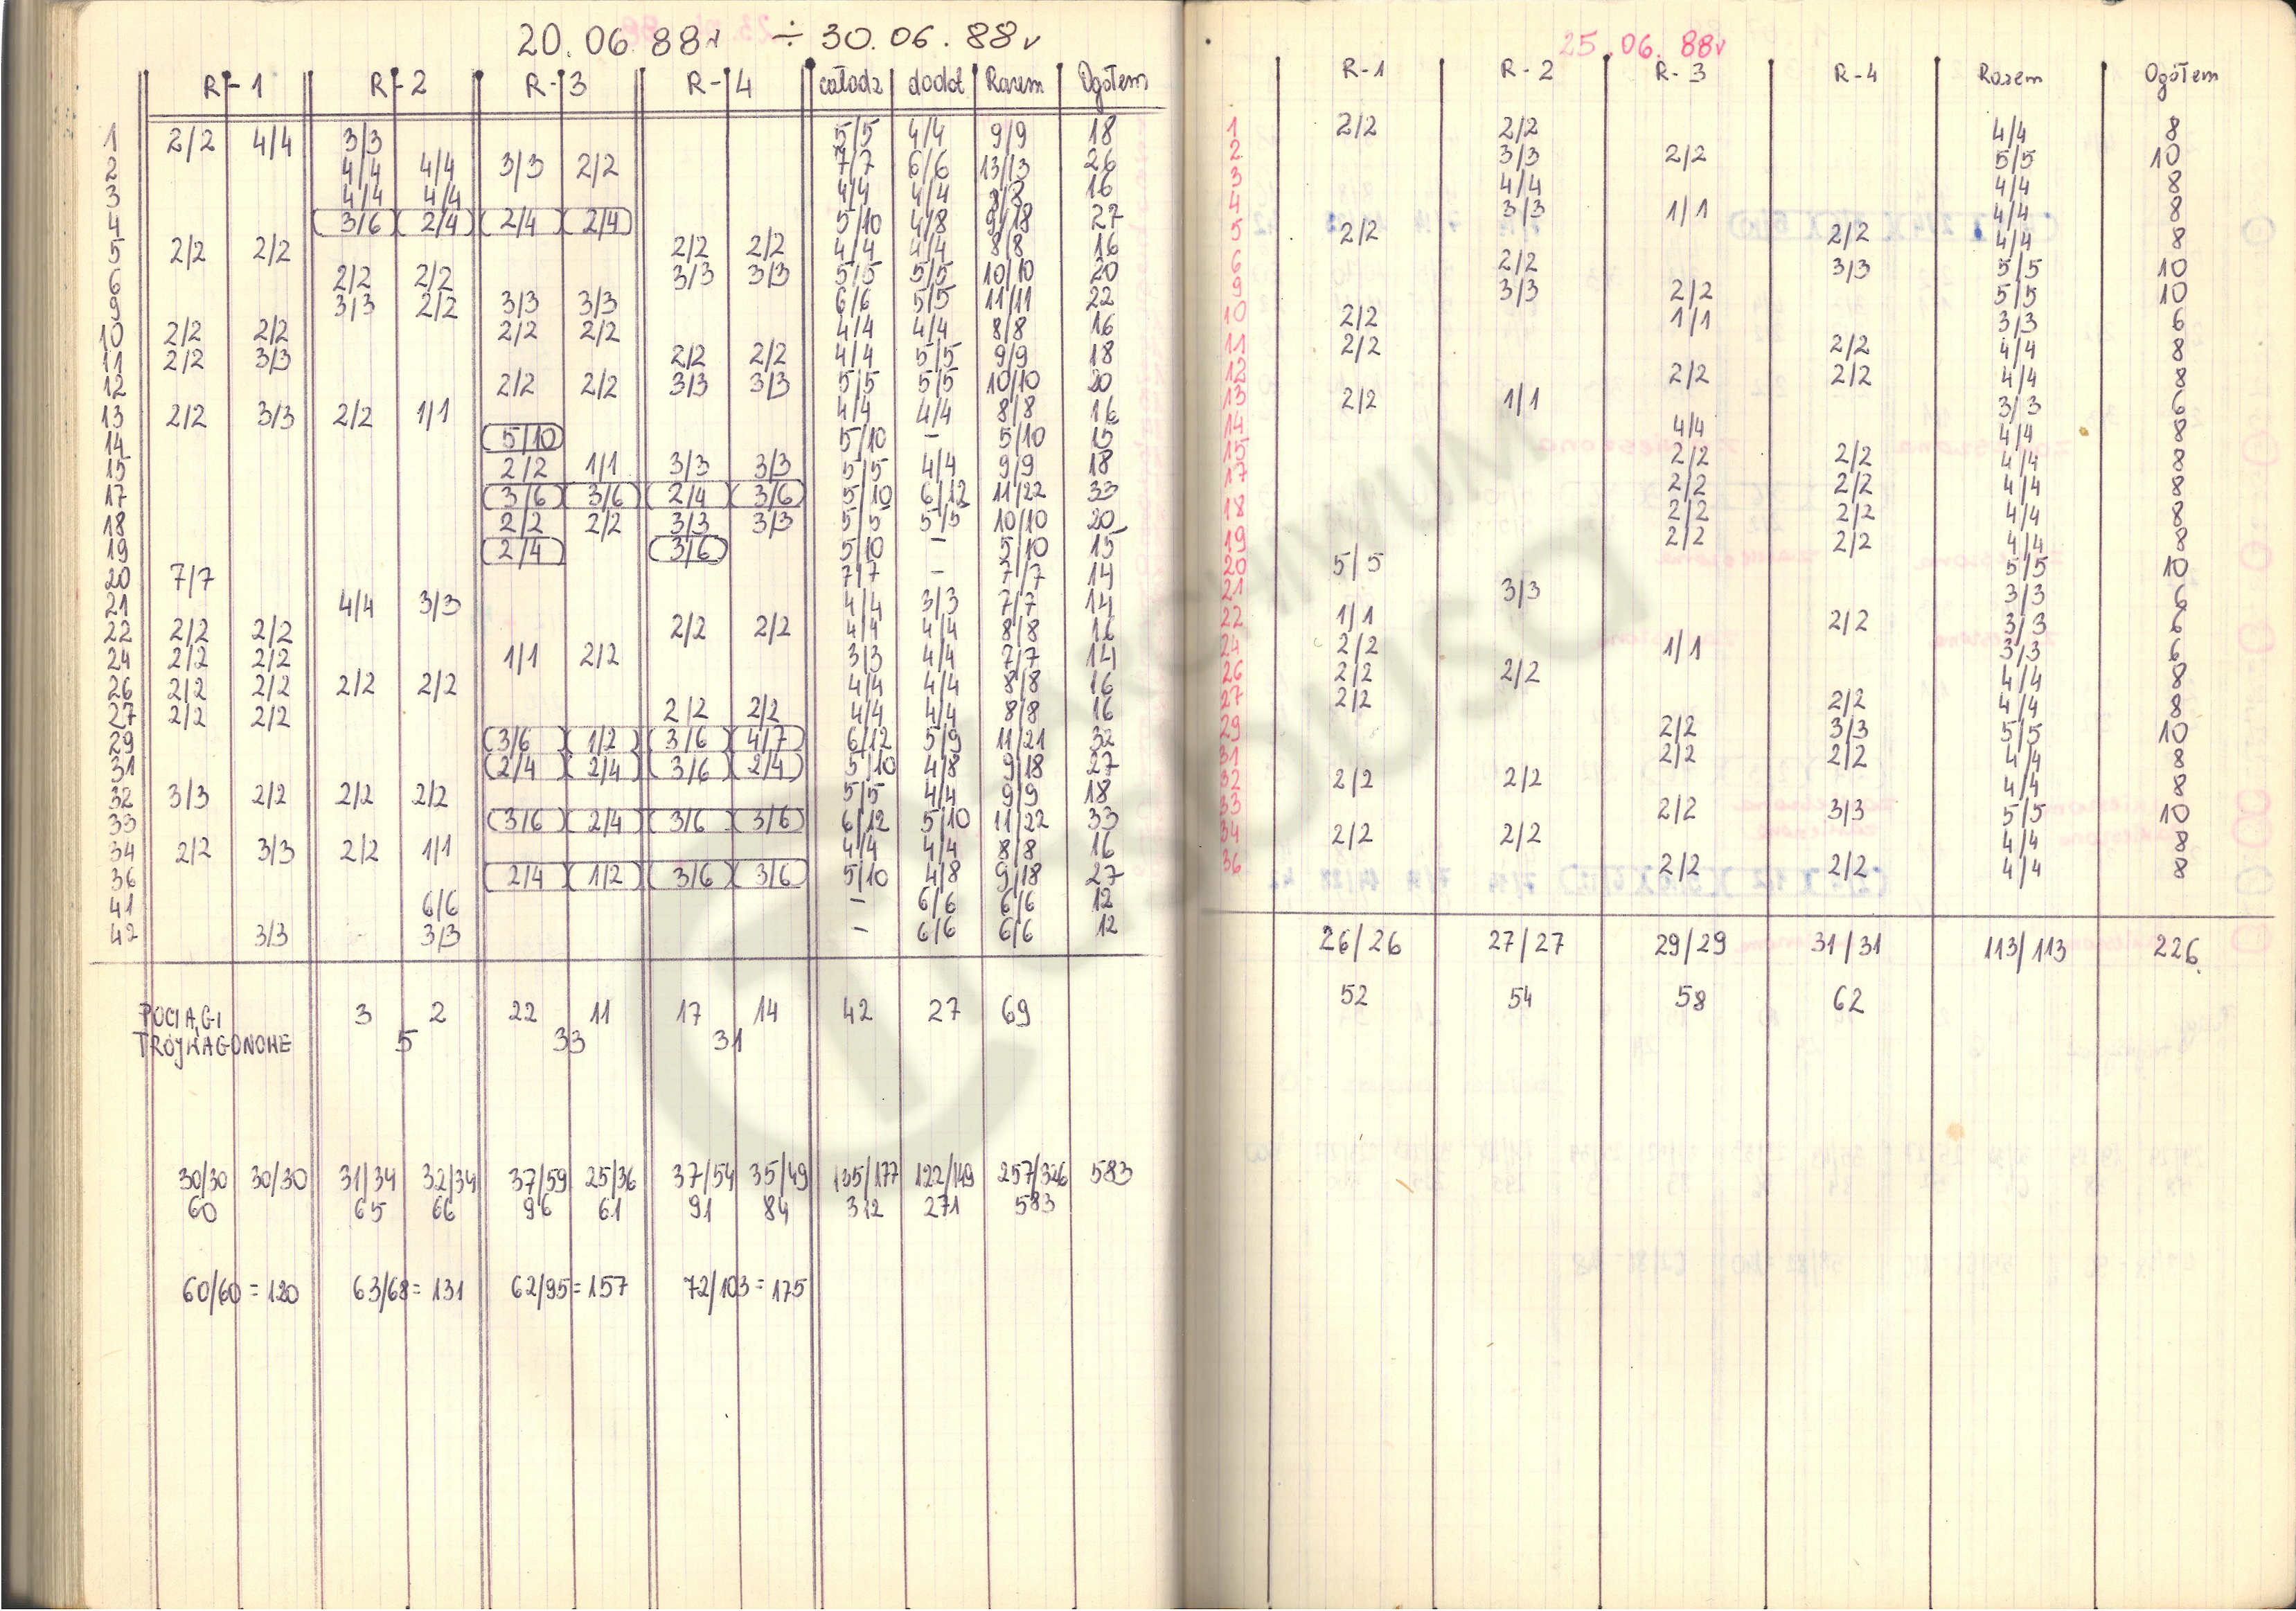 20.06.88r ÷ 30.06.88r
R-1 R-2 R-3 R-4 całodz dodot Razem Ogółem
1 2/2 4/4 3/3 5/5 4/4 9/9 18
2 4/4 4/4 3/3 2/2 7/7 6/6 13/13 26
3 4/4 4/4 4/4 4/4 8/8 16
4 3/6 2/4 2/4 2/4 5/10 4/8 9/18 27
5 2/2 2/2 2/2 2/2 4/4 4/4 8/8 16
6 2/2 2/2 3/3 3/3 5/5 5/5 10/10 20
9 3/3 2/2 3/3 3/3 6/6 5/5 11/11 22
10 2/2 2/2 2/2 2/2 4/4 4/4 8/8 16
11 2/2 3/3 2/2 2/2 4/4 5/5 9/9 18
12 2/2 2/2 3/3 3/3 5/5 5/5 10/10 20
13 2/2 3/3 2/2 1/1 4/4 4/4 8/8 16
14 5/10 5/10 - 5/10 15
15 2/2 1/1 3/3 3/3 5/5 4/4 9/9 18
17 3/6 3/6 2/4 3/6 5/10 6/12 11/22 33
18 2/2 2/2 3/3 3/3 5/5 5/5 10/10 20
19 2/4 3/6 5/10 - 5/10 15
20 7/7 7/7 - 7/7 14
21 4/4 3/3 4/4 3/3 7/7 14
22 2/2 2/2 2/2 2/2 4/4 4/4 8/8 16
24 2/2 2/2 1/1 2/2 3/3 4/4 7/7 14
26 2/2 2/2 2/2 2/2 4/4 4/4 8/8 16
27 2/2 2/2 2/2 2/2 4/4 4/4 8/8 16
29 3/6 1/2 3/6 4/7 6/12 5/9 11/21 32
31 2/4 2/4 3/6 2/4 5/10 4/8 9/18 27
32 3/3 2/2 2/2 2/2 5/5 4/4 9/9 18
33 3/6 2/4 3/6 3/6 6/12 5/10 11/22 33
34 2/2 3/3 2/2 1/1 4/4 4/4 8/8 16
36 2/4 1/2 3/6 3/6 5/10 4/8 9/18 27
41 6/6 - 6/6 6/6 12
42 3/3 3/3 - 6/6 6/6 12
POCIĄGI 3 2 22 11 17 14 42 27 69
TRÓJWAGONOWE 5 33 31
30/30 30/30 31/34 32/34 37/59 25/36 37/54 35/49 135/177 122/149 257/326 583
60 65 66 96 61 91 84 312 271 583
60/60 = 120 63/68 = 131 62/95 = 157 72/103 = 175
25.06.88r
R-1 R-2 R-3 R-4 Razem Ogółem
1 2/2 2/2 4/4 8
2 3/3 2/2 5/5 10
3 4/4 4/4 8
4 3/3 1/1 4/4 8
5 2/2 2/2 4/4 8
6 2/2 3/3 5/5 10
9 3/3 2/2 5/5 10
10 2/2 1/1 3/3 6
11 2/2 2/2 4/4 8
12 2/2 2/2 4/4 8
13 2/2 1/1 3/3 6
14 4/4 4/4 8
15 2/2 2/2 4/4 8
17 2/2 2/2 4/4 8
18 2/2 2/2 4/4 8
19 2/2 2/2 4/4 8
20 5/5 5/5 10
21 3/3 3/3 6
22 1/1 2/2 3/3 6
24 2/2 1/1 3/3 6
26 2/2 2/2 4/4 8
27 2/2 2/2 4/4 8
29 2/2 3/3 5/5 10
31 2/2 2/2 4/4 8
32 2/2 2/2 4/4 8
33 2/2 3/3 5/5 10
34 2/2 2/2 4/4 8
36 2/2 2/2 4/4 8
26/26 27/27 29/29 31/31 113/113 226
52 54 58 62